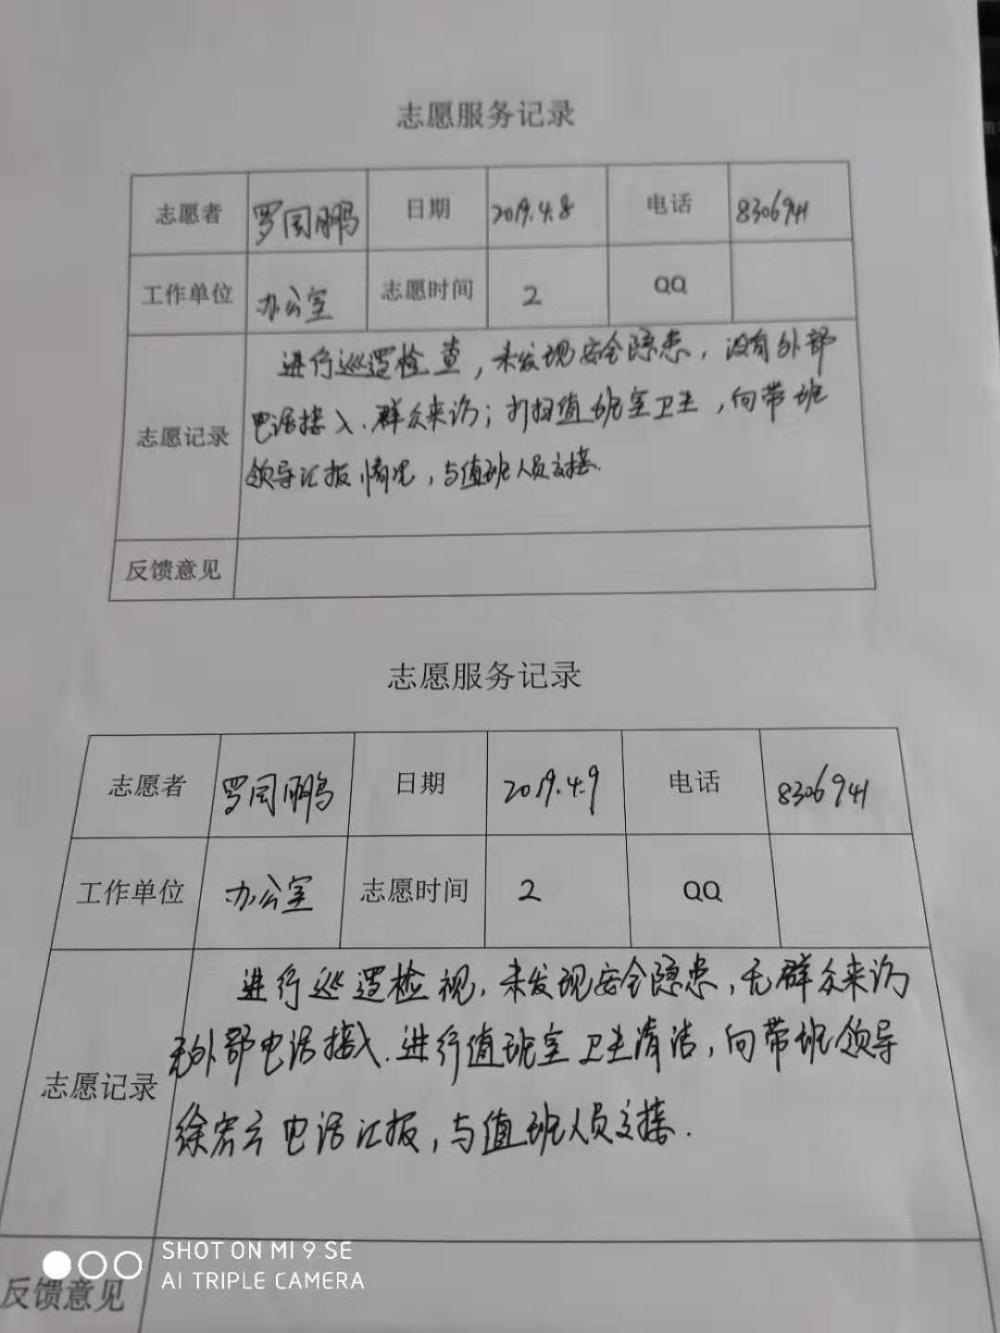 志愿服务记录
志愿者 罗国鹏 日期 2019.4.8 电话 8306941
工作单位 办公室 志愿时间 2 QQ
进行巡逻检查，未发现安全隐患，没有外部
电话接入、群众来访；打扫值班室卫生，向带班
志愿记录
领导汇报情况，与值班人员交接.
反馈意见
志愿服务记录
志愿者 罗国鹏 日期 2019.4.9 电话 8306941
工作单位 办公室 志愿时间 2 QQ
进行巡逻检视，未发现安全隐患，无群众来访
无外部电话接入.进行值班室卫生清洁，向带班领导
志愿记录
徐宏云电话汇报，与值班人员交接.
反馈意见
SHOT ON MI 9 SE
AI TRIPLE CAMERA